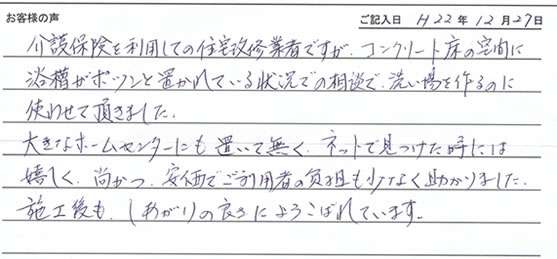 お客様の声 ご記入日 H22年12月27日
介護保険を利用しての住宅改修業者ですが、コンクリート床の空間に
浴槽がポツンと置かれている状況での相談で、洗い場を作るのに
使わせて頂きました。
大きなホームセンターにも置いて無く、ネットで見つけた時には
嬉しく、尚かつ、安価でご利用者の負担も少なく助かりました。
施工後も、しあがりの良さによろこばれています。